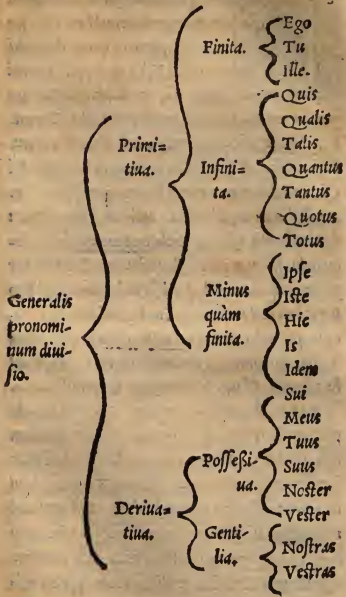 Generalis
pronomi=
num diui=
ſio.
Primi=
tiua.
Finita.
Ego
Tu
Ille.
Infini=
ta.
Quis
Qualis
Talis
Quantus
Tantus
Quotus
Totus
Minus
quàm
finita.
Ipſe
Iſte
Hic
Is
Idem
Sui
Deriua=
tiua.
Poſſeßi=
ua.
Meus
Tuus
Suus
Noſter
Veſter
Genti=
lia.
Noſtras
Veſtras